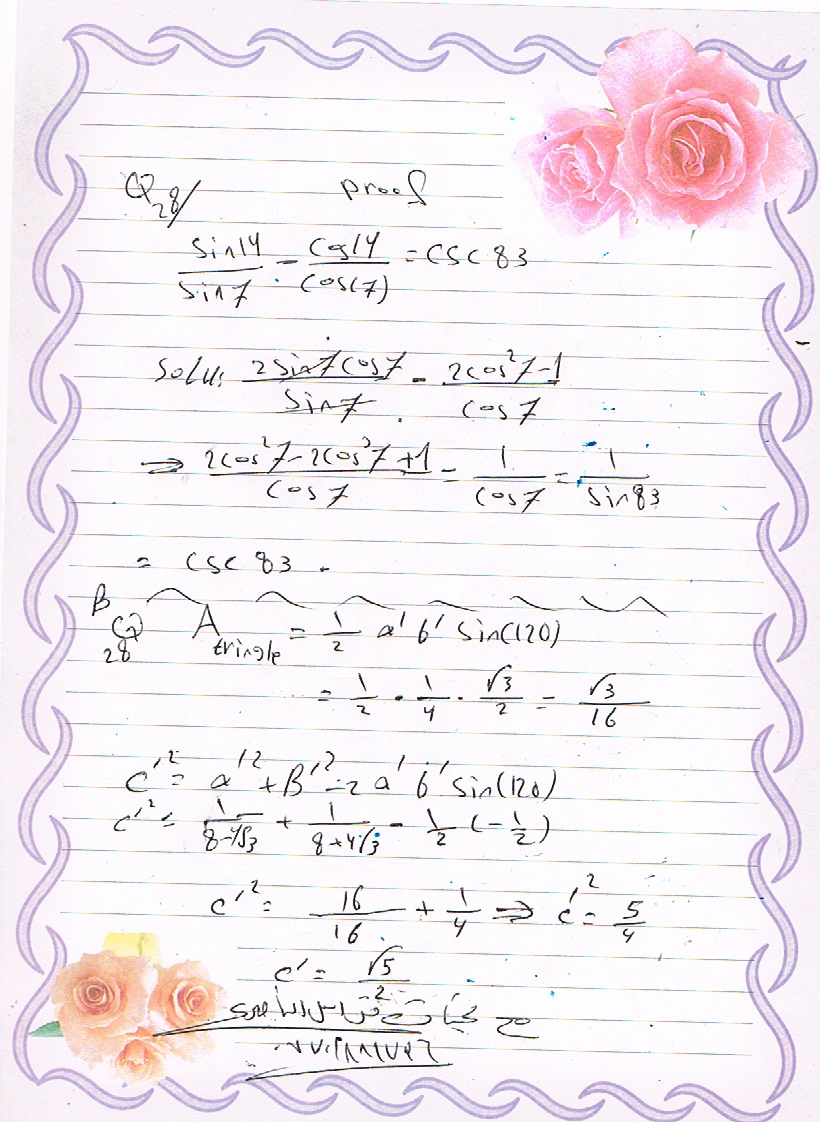 Q28/ proof
sin14/sin7 - cos14/cos(7) = csc 83
Solu: 2sin7cos7/sin7 - 2cos²7-1/cos7
⇒ 2cos²7-2cos²7+1/cos7 = 1/cos7 = 1/sin83
= csc 83 .
B
Q28 A tringle = 1/2 a' b' sin(120)
= 1/2 · 1/4 · √3/2 = √3/16
c'² = a'² + B'² - 2 a' b' sin(120)
c'² = 1/8-4√3 + 1/8+4√3 - 1/2 (-1/2)
c'² = 16/16 + 1/4 ⇒ c'² = 5/4
c' = √5/2